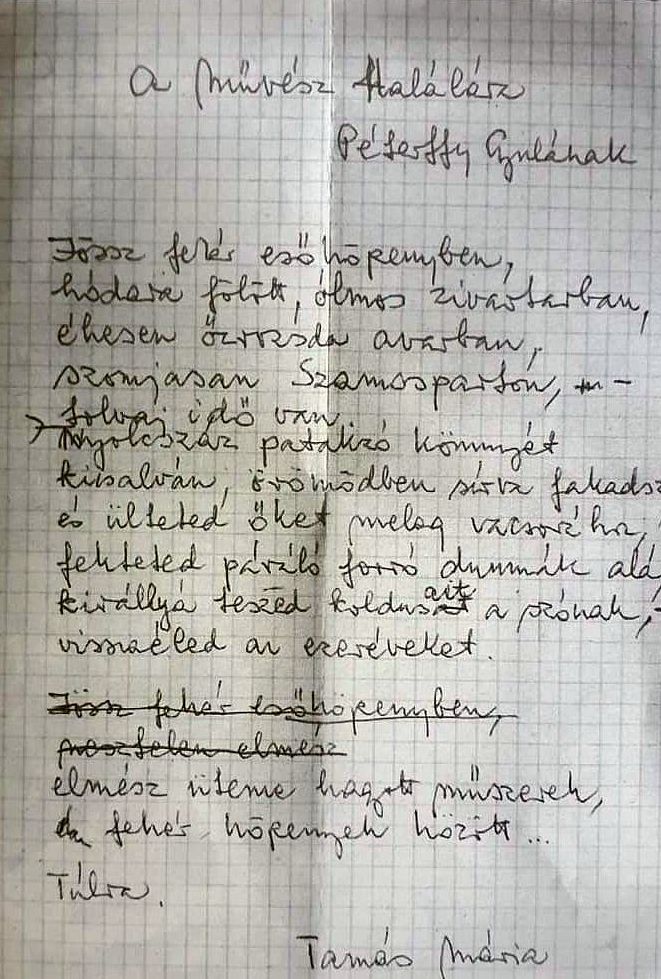 A Művész Halálára
Péterffy Gyulának
Jössz fehér esőköpenyben,
hódara fölött, ólmos zivatarban,
éhesen őzrozsda avarban,
szomjasan Szamosparton, –
tolvaj idő van.
Nyolcszáz patakzó könnyét
kisalván, örömödben sírva fakadsz
és ülteted őket meleg vacsorához,
fekteted páráló forró dunnák alá
királlyá teszed koldusait a szónak, –
visszaéled az ezeréveket.
Jössz fehér esőköpenyben,
nesztelen elmész
elmész üteme hagyott műszerek,
fehér köpenyek között...
Túlra.
Tamás Mária